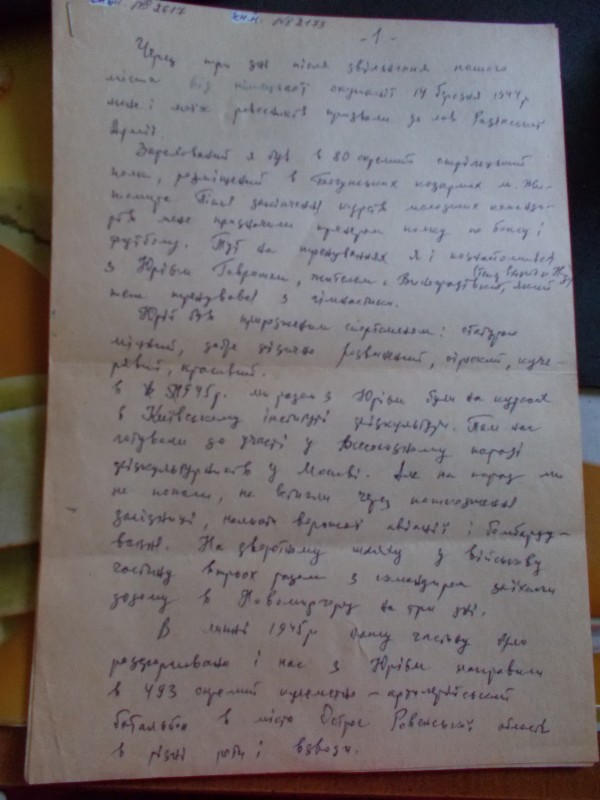 інв. №2617 кн.н. №82133
- 1 -
Через три дні після звільнення нашого
міста від німецької окупації 14 березня 1944 р
мене і моїх ровесників призвали до лав Радянської
Армії.
Зарахований я був в 80 окремий стрілецький
полк, розміщений в Богунських казармах м. Жи-
томира. Після закінчення курсів молодших команди-
рів мене призначили тренером полку по боксу і
футболу. Тут на тренуваннях я і познайомився
з Юрієм, жителем с. Виноградівки, який
теж тренувався з гімнастики.
Юрій був природженим спортсменом: статурою
міцний, добре фізично розвинений, куче-
рявий, красивий.
в 1945 р. ми разом з Юрієм були на курсах
в Київському інституті фізкультури. Там нас
готували до участі у Всесоюзному параді
фізкультурників у Москві. Але на парад ми
не попали, не встигли через пошкодження
залізниці, нальоти ворожої авіації і бомбарду-
вання. На зворотньому шляху у військову
частину втрьох разом з командиром заїхали
додому в на три дні.
В липні 1945 р нашу частину було
розформовано і нас з Юрієм направили
в 493 окремий кулеметно-артилерійський
батальйон в місто Острог Ровенської області
в різні роти і взводи.